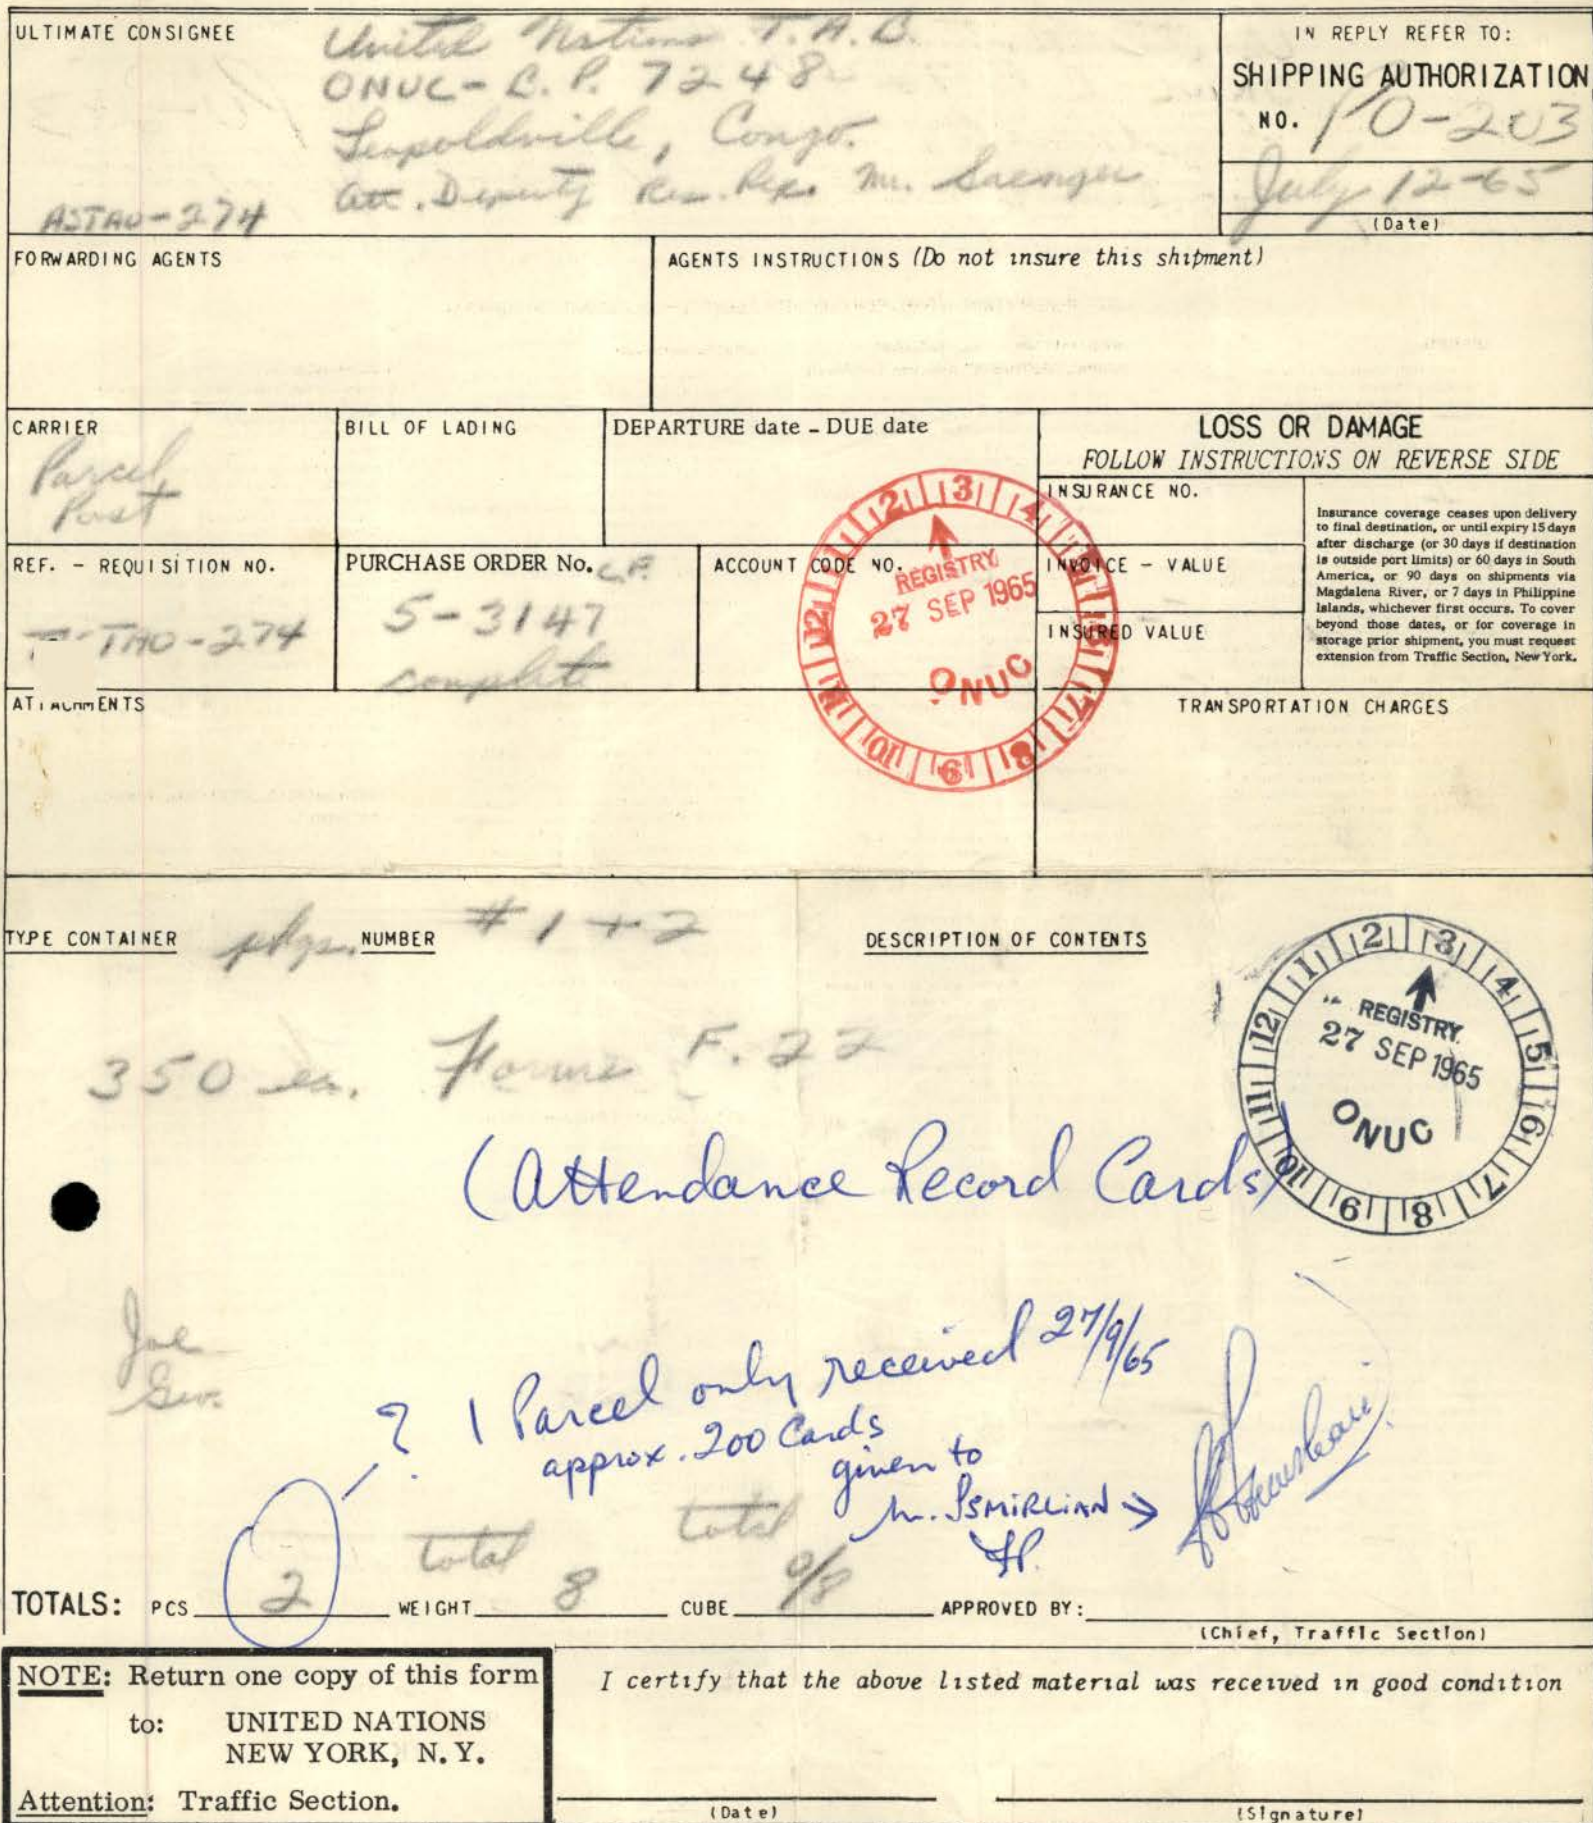 ULTIMATE CONSIGNEE
United Nations T.A.B.
ONUC - B.P. 7248
Leopoldville, Congo.
Att. Deputy Res. Rep. Mr. Saenger
ASTAO-274
IN REPLY REFER TO:
SHIPPING AUTHORIZATION
NO. PO-203
July 12-65
(Date)
FORWARDING AGENTS
AGENTS INSTRUCTIONS (Do not insure this shipment)
CARRIER
Parcel
Post
BILL OF LADING
DEPARTURE date - DUE date
LOSS OR DAMAGE
FOLLOW INSTRUCTIONS ON REVERSE SIDE
INSURANCE NO.
INVOICE - VALUE
INSURED VALUE
Insurance coverage ceases upon delivery
to final destination, or until expiry 15 days
after discharge (or 30 days if destination
is outside port limits) or 60 days in South
America, or 90 days on shipments via
Magdalena River, or 7 days in Philippine
Islands, whichever first occurs. To cover
beyond those dates, or for coverage in
storage prior shipment, you must request
extension from Traffic Section, New York.
REF. - REQUISITION NO.
TAO-274
PURCHASE ORDER No. C.F.
5-3147
complete
ACCOUNT CODE NO.
1 2 3 4 5 6 7 8 9 10 11 12
REGISTRY
27 SEP 1965
ONUC
ATTACHMENTS
TRANSPORTATION CHARGES
TYPE CONTAINER pkgs. NUMBER # 1 + 2
DESCRIPTION OF CONTENTS
1 2 3 4 5 6 7 8 9 10 11 12
REGISTRY
27 SEP 1965
ONUC
350 ea. Forms F. 22
(Attendance Record Cards)
Joe
? 1 Parcel only received 27/9/65
approx. 200 Cards
given to
total total
TOTALS: PCS 2 WEIGHT 8 CUBE 0/8 APPROVED BY:
(Chief, Traffic Section)
NOTE: Return one copy of this form
to: UNITED NATIONS
NEW YORK, N.Y.
Attention: Traffic Section.
I certify that the above listed material was received in good condition
(Date)
(Signature)